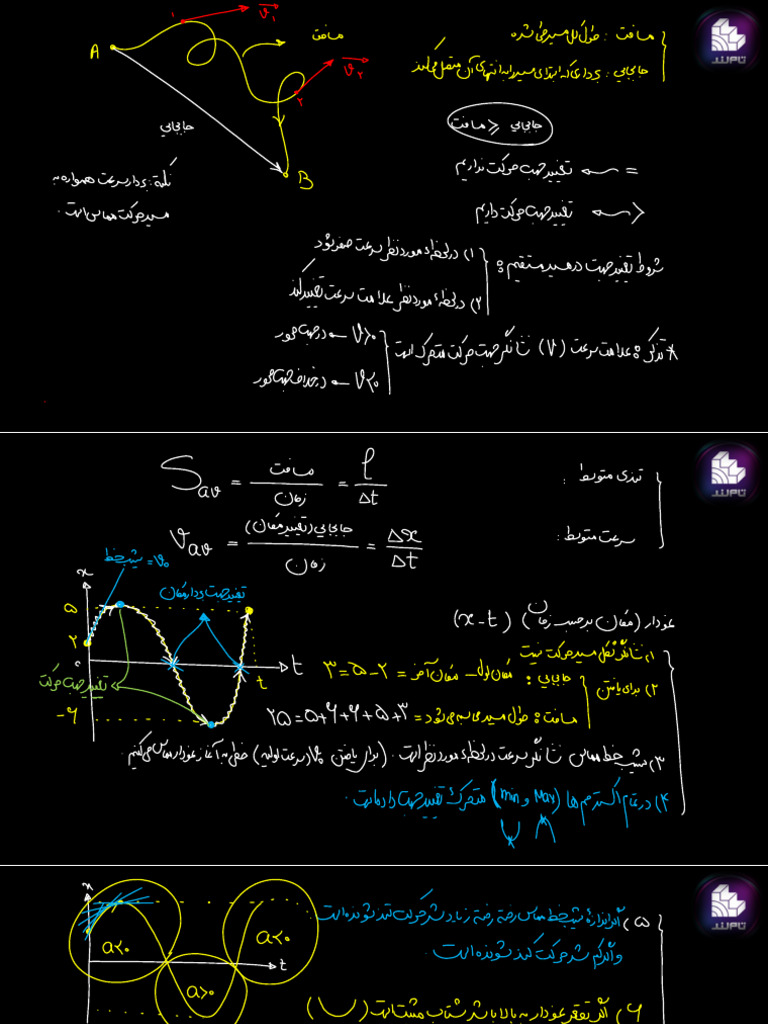 مسافت : طول کل مسیر طی شده
جابجایی : برداری که ابتدای مسیر را به انتهای آن متصل می‌کند
A
1
V₁
مسافت
V₂
2
B
جابجایی
نکته : بردار سرعت همواره به
مسیر حرکت مماس است.
جابجایی ⩽ مسافت
= تغییر جهت حرکت نداریم
> تغییر جهت حرکت داریم
شروط تغییر جهت در مسیر مستقیم :
۱) در لحظهٔ مورد نظر سرعت صفر شود
۲) در لحظهٔ مورد نظر علامت سرعت تغییر کند
* تذکر : علامت سرعت (V) نشانگر جهت حرکت متحرک است
V>0 در جهت محور
V<0 در خلاف جهت محور
تام‌لند
تندی متوسط :
S_av = مسافت / زمان = l / Δt
سرعت متوسط :
V_av = جابجایی (تغییر مکان) / زمان = Δx / Δt
شیب خط = V₀
تغییر جهت بردار مکان
x
۵
۲
۰
-۶
t
t
تغییر جهت حرکت
نمودار (مکان برحسب زمان) (x-t)
۱) نشانگر شکل مسیر حرکت نیست
۲) برای یافتن
جابجایی : مکان اول - مکان آخر = ۵-۲=۳
مسافت : طول مسیر محاسبه می‌شود = ۳+۵+۶+۶+۵=۲۵
۳) شیب خط مماس نشانگر سرعت در لحظهٔ مورد نظر است. (برای یافتن V₀ (سرعت اولیه) خطی به آغاز نمودار مماس می‌کنیم
۴) در تمام اکسترمم‌ها (Max و min) متحرک تغییر جهت داده است.
تام‌لند
x
a<0
a>0
a<0
t
۵) اگر اندازهٔ شیب خط مماس رفته رفته زیاد شد حرکت تند شونده است
و اگر کم شد حرکت کند شونده است.
۶) اگر تقعر نمودار به بالا باشد شتاب مثبت است (∪)
تام‌لند